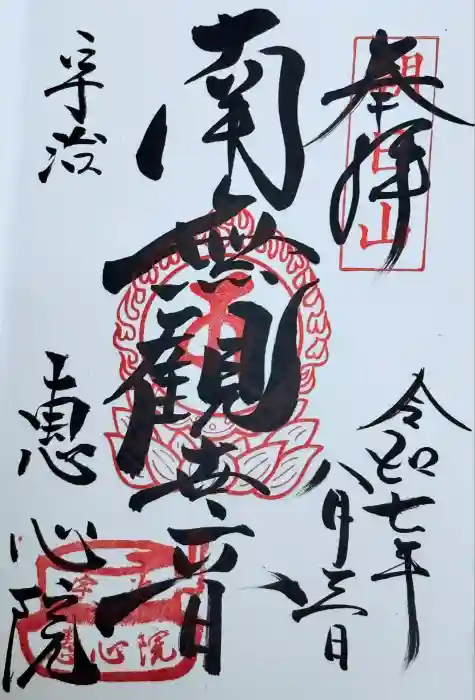 奉拝
朝日山
令和七年
八月三日
南無観世音
宇治
恵心院
恵心院